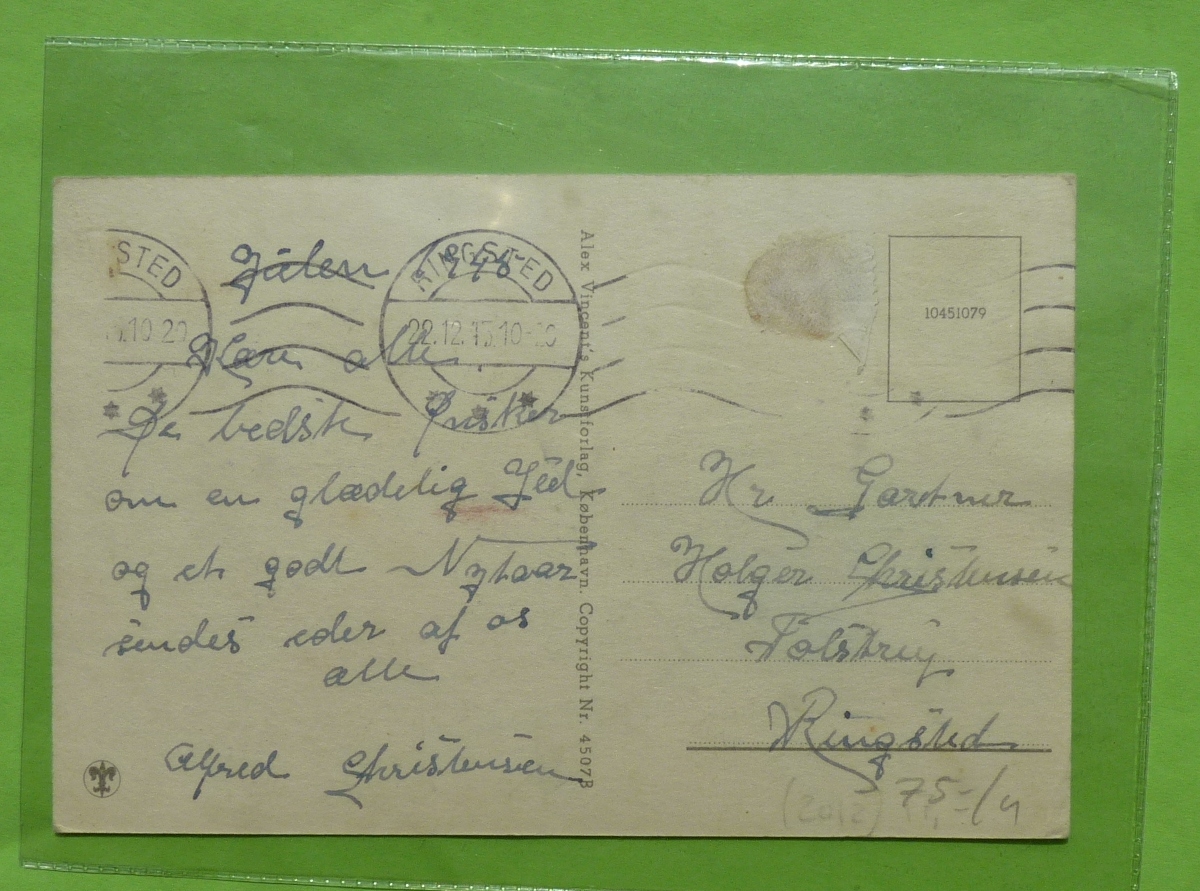 STED
10 20
RINGSTED
22.12.45.10-20
Julen 1945
Kære alle
De bedste Ønsker
om en glædelig Jul
og et godt Nytaar
sendes eder af os
alle
Alfred Christensen
Alex Vincent's Kunstforlag, København. Copyright Nr. 4507B
10451079
Hr Gartner
Holger Christensen
Ringsted
(2012) 75,-/4